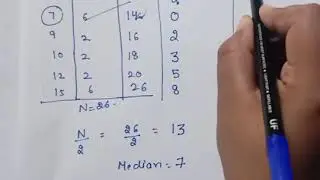 7 6 14 0
9 2 16 2
10 2 18 3
12 2 20 5
15 6 26 8
N=26
N/2 = 26/2 = 13
Median = 7
UF